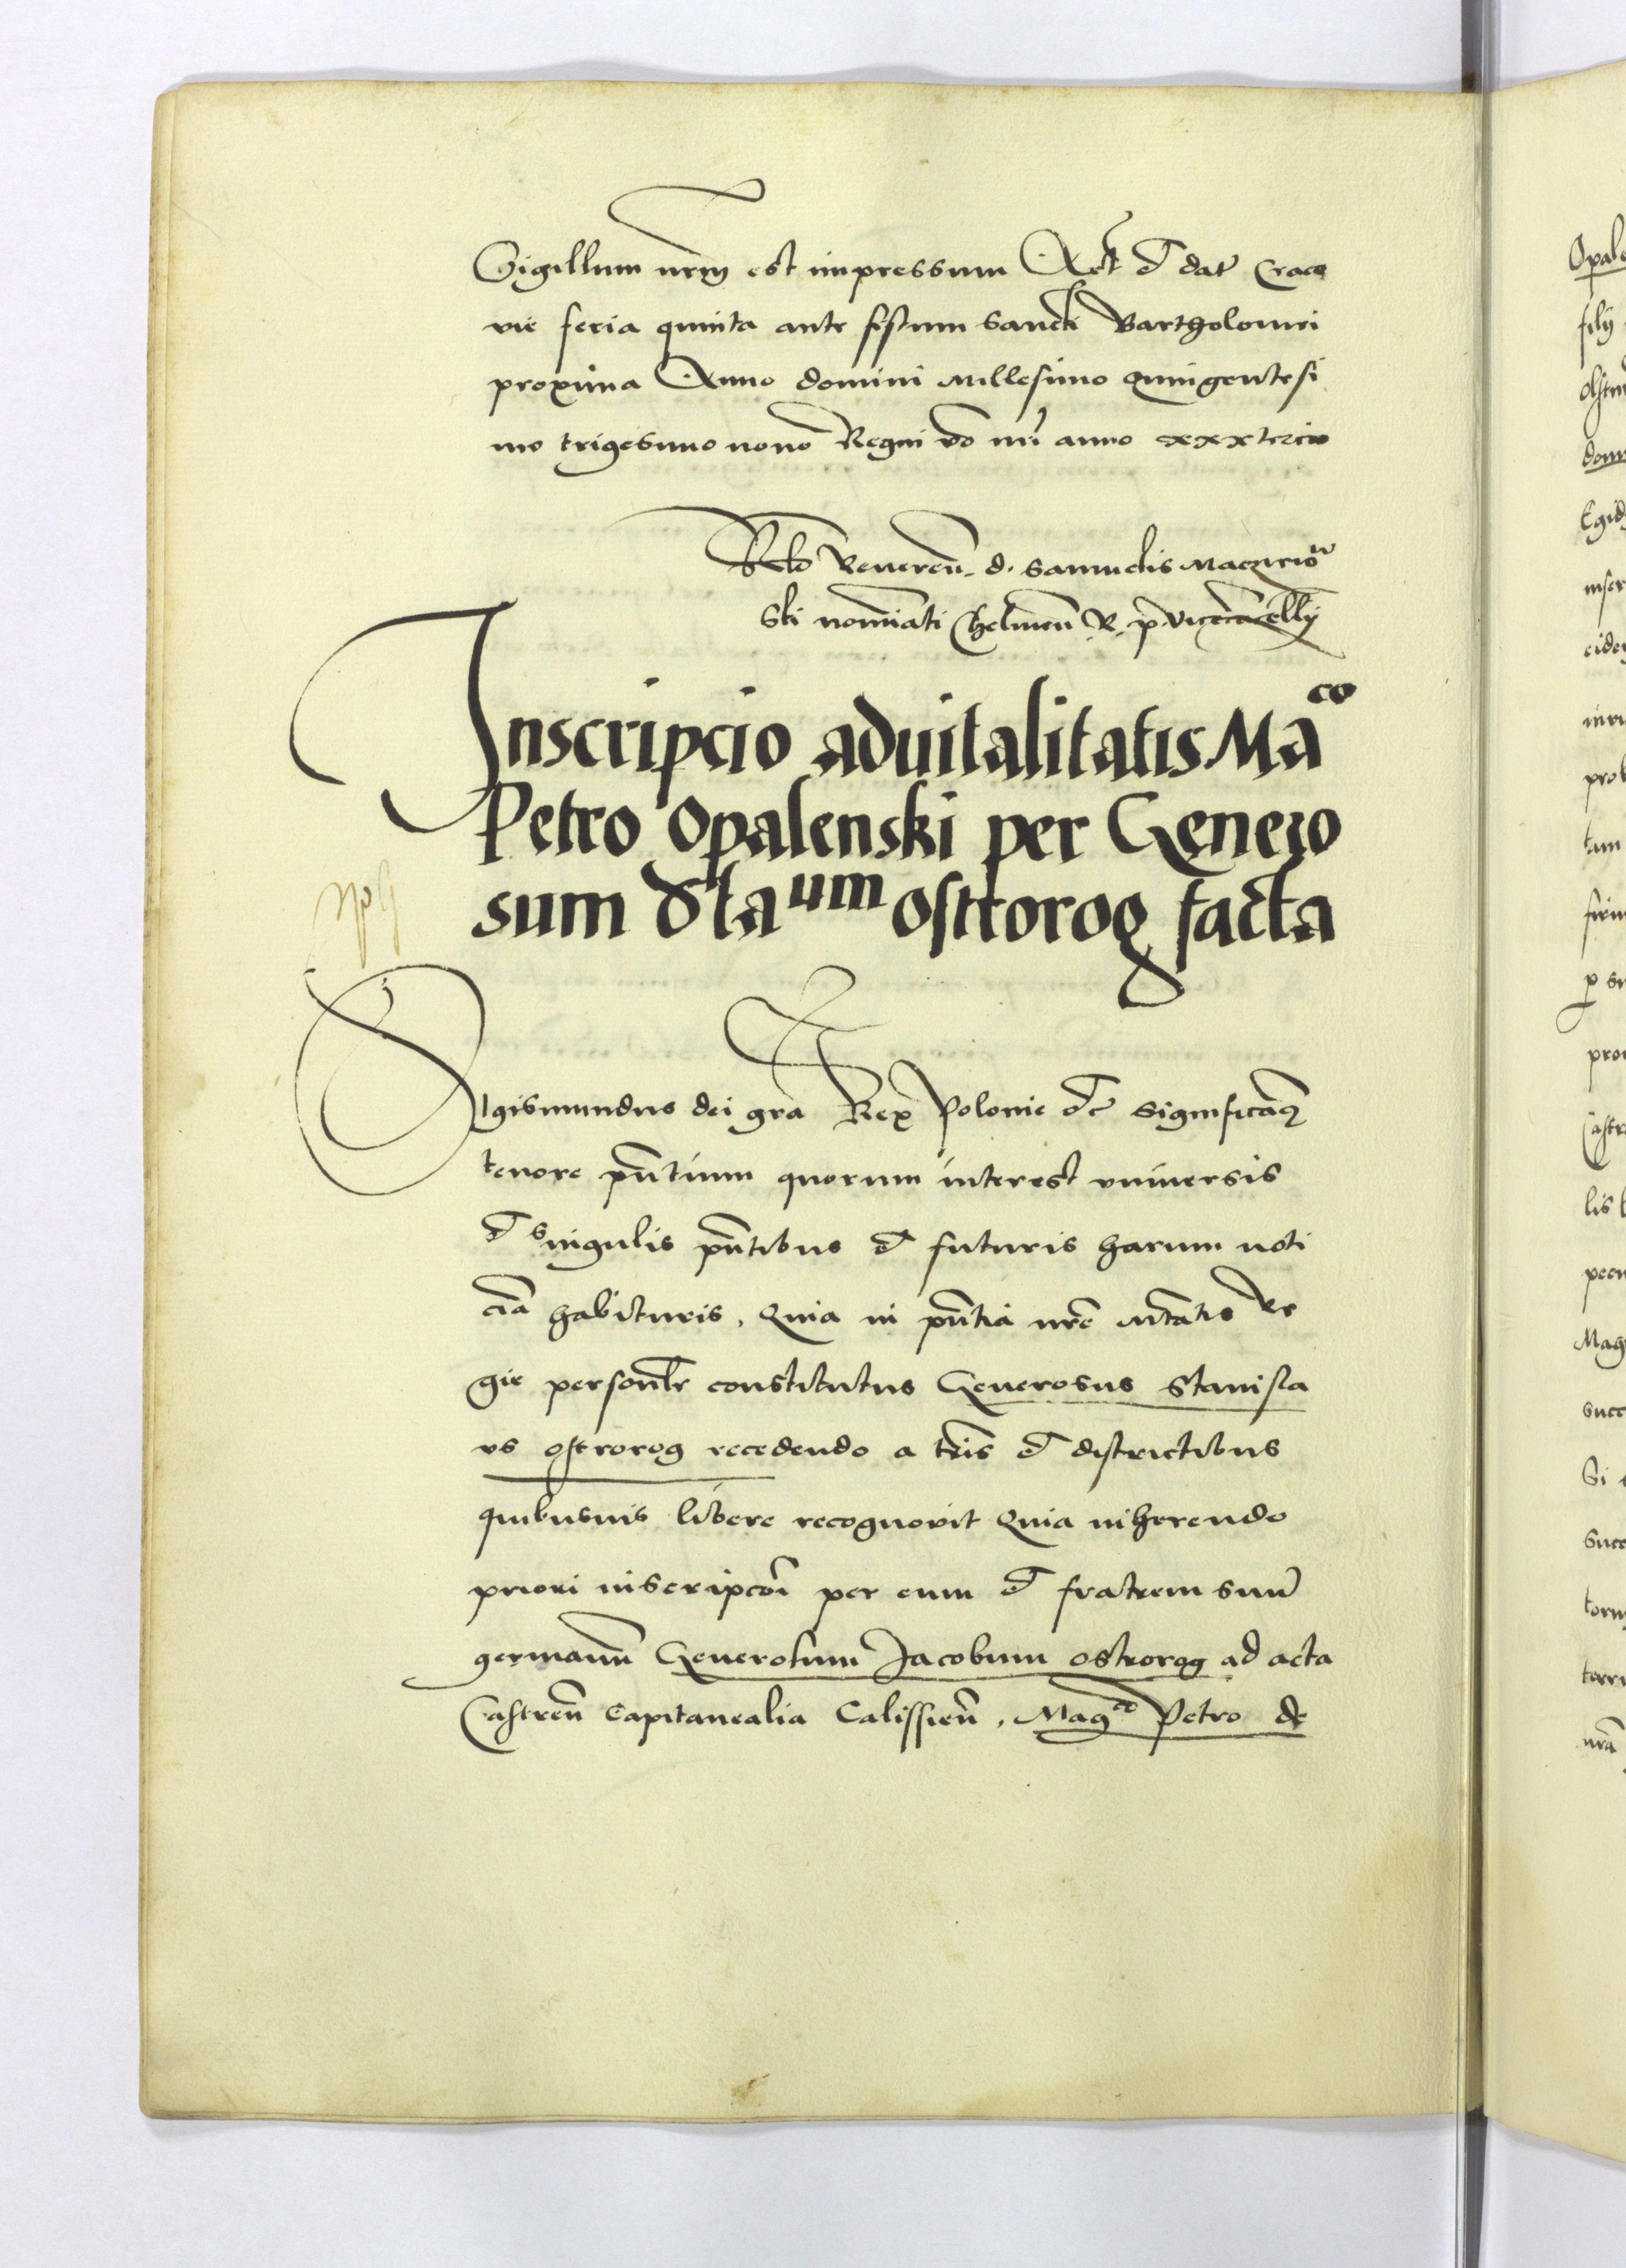 Sigillum nrm̄ est impressum Act̄ et dat̄ Craco
vie feria quinta ante festum Sancti Bartholomei
proxima Anno domini Millesimo Quingentesi
mo trigesimo nono Regni vō nrī anno xxxtercio
Rlō Reveren̄. d. Samuelis Macziejow
ski nominati Chelmen̄. R. p. Vicecancellij
Inscripcio advitalitatis Mā co
Petro Opalenski per Genero
sum Sta um Osttorog facta
Sigismundus dei grā Rex Polonie etc̄ Significamꝰ
tenore pn̄tium quorum interest universis
et singulis pn̄tibus et futuris harum noti
ciā habituris, Quia in pn̄tia nrē Mtātis Re
gie personlr̄ constitutus Generosus Stanisla
us Ostrorog recedendo a trīs et districtibus
quibusvis libere recognovit Quia inherendo
priori inscripcōi per eum et fratrem suum̄
germanū Generosum Jacobum Ostrorog ad acta
Castren̄ Capitanealia Calissien̄, Magco Petro de
Opale
filij
dom
Egid
inser
eidem
prob
tam
firm
p su
Castr
lis
pecu
Mag
succ
Si
succ
torum
terri
nrā